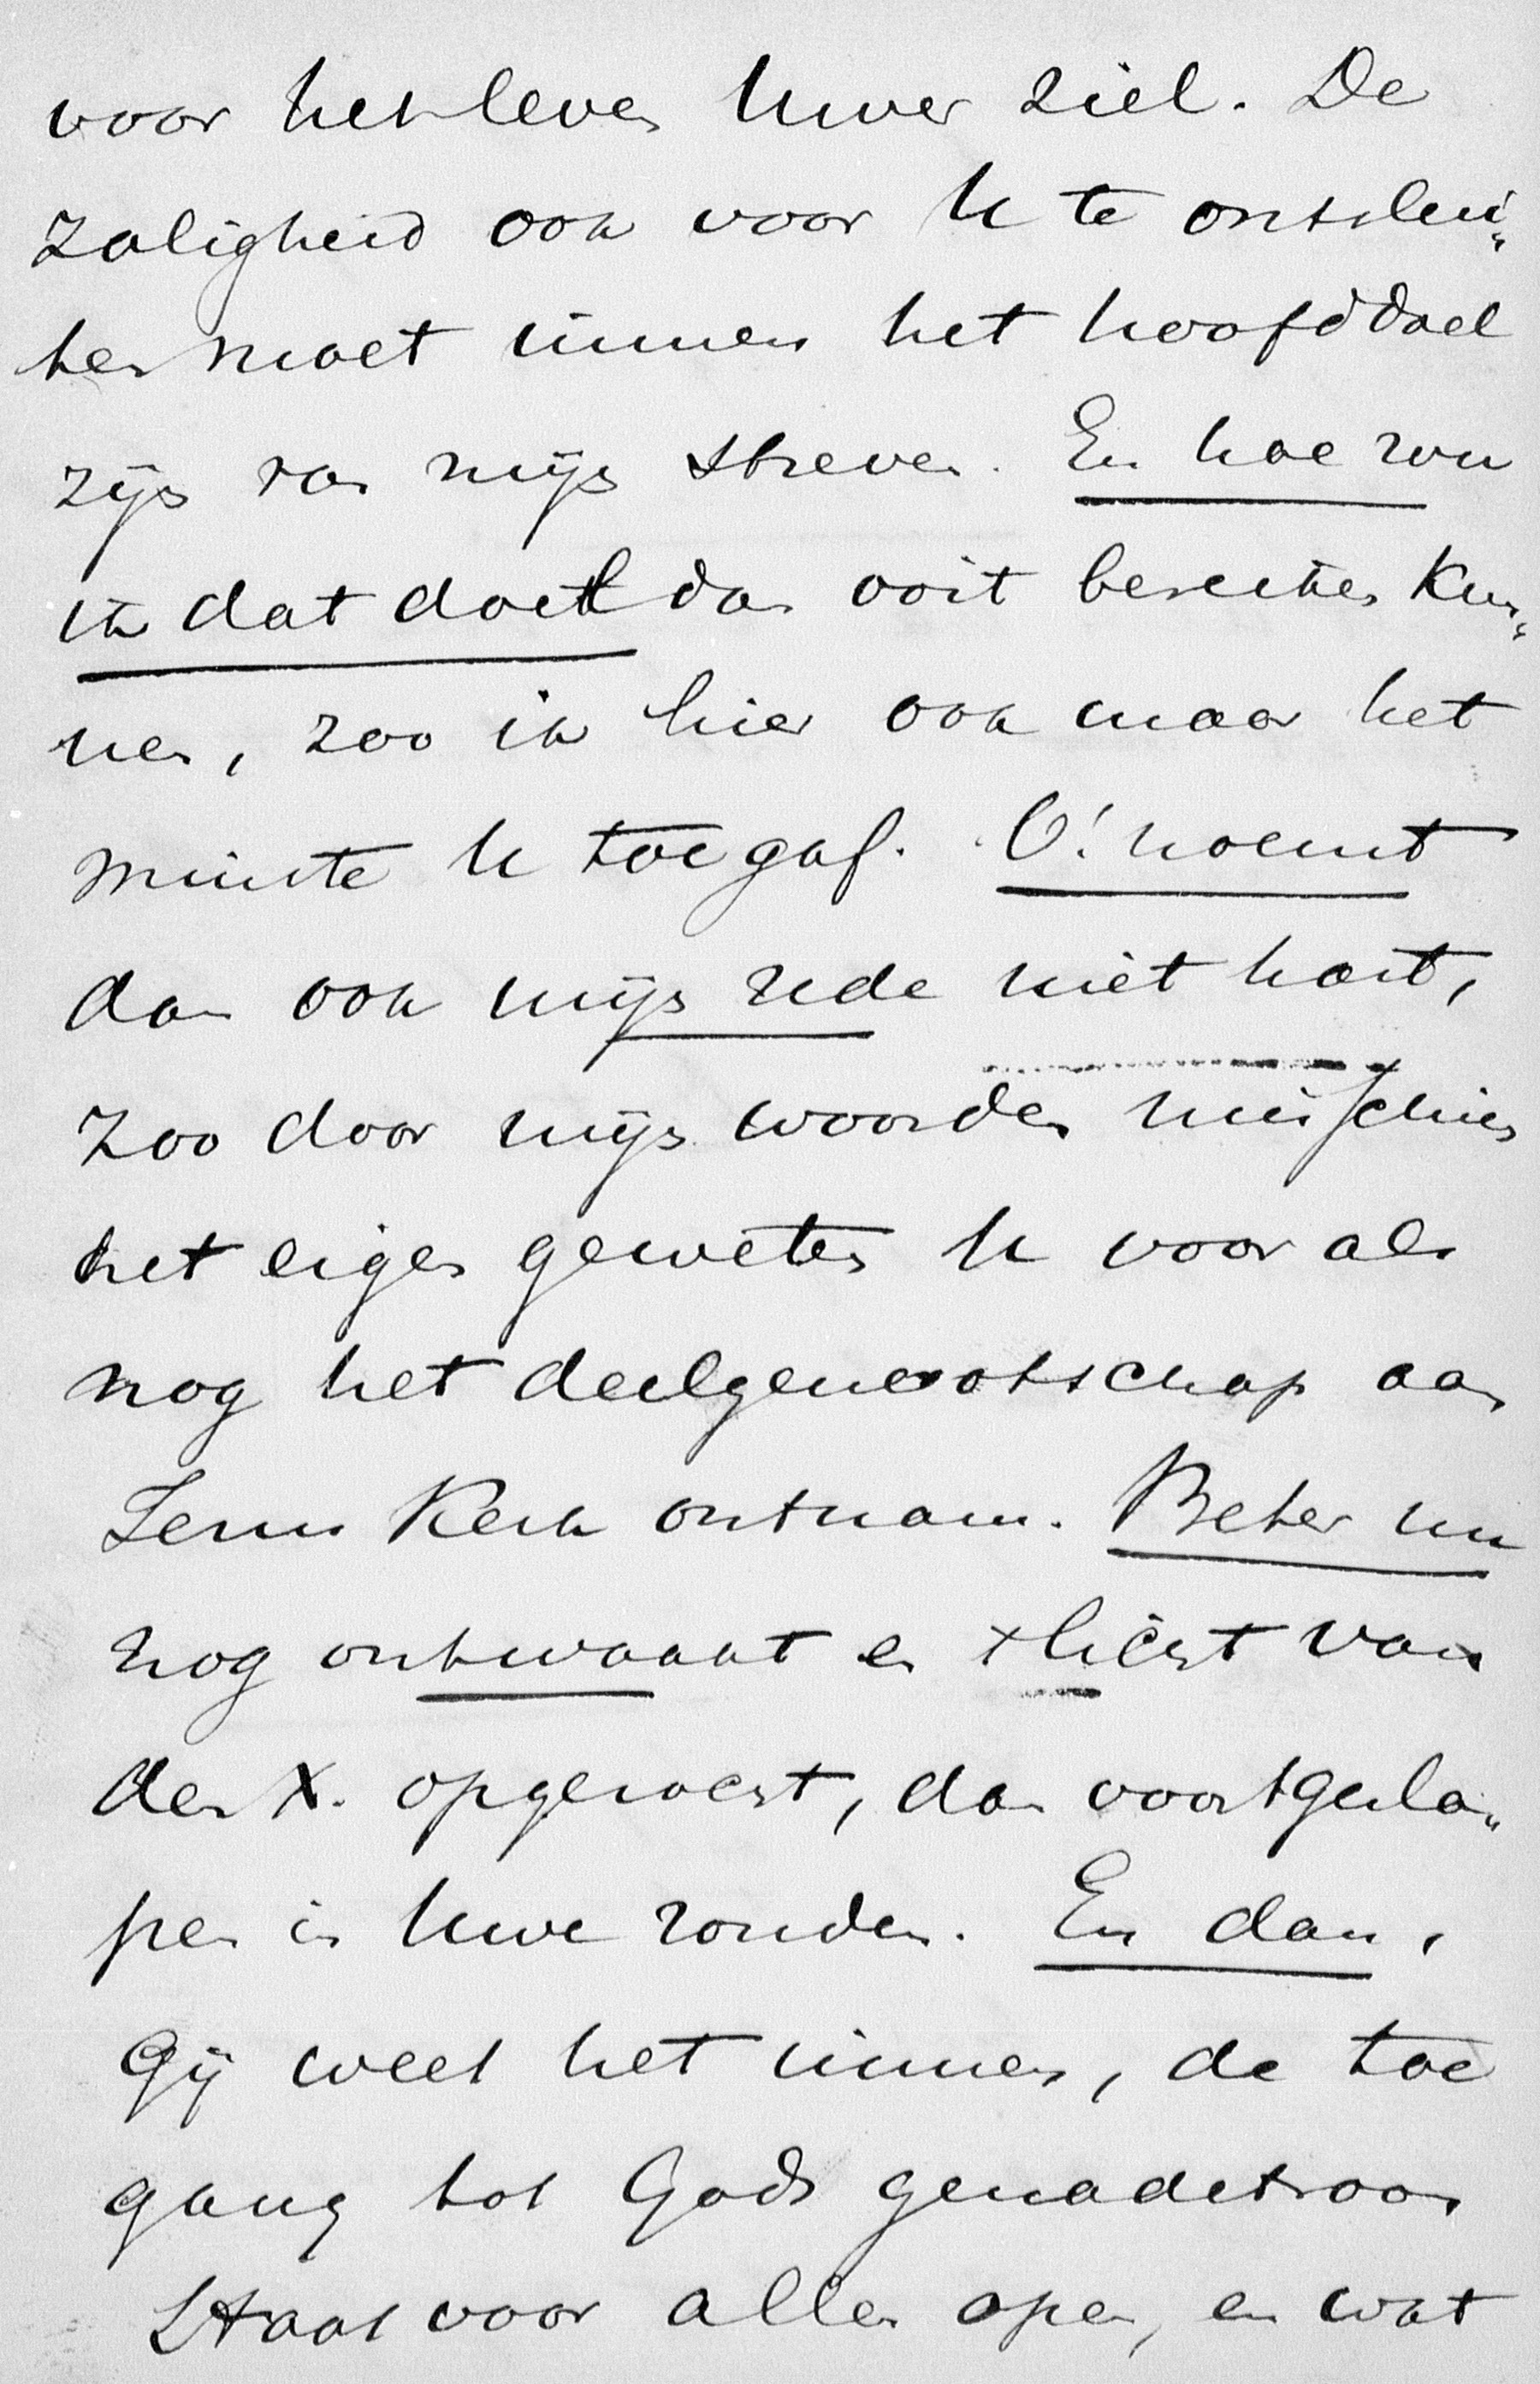 voor het leven Uwer ziel. De
zaligheid ook voor U te ontslui„
ten moet immer het hoofddoel
zijn van mijn streven. En hoe zou
ik dat doel dan ooit bereiken kun„
nen, zoo ik hier ook maar het
minste U toegaf. O! noemt
dan ook mijn rede niet hart,
zoo door mijn woorden misschien
het eigen geweten U voor als
nog het deelgenootschap aan
Jezus Kerk ontnam. Beter nu
nog ontwaakt en × liefst van
den X. opgeroest, dan voortgesla„
pen in Uwe zonden. En dan,
Gij weet het immer, de toe
gang tot Gods genadetroon
Staat voor allen open, en wat